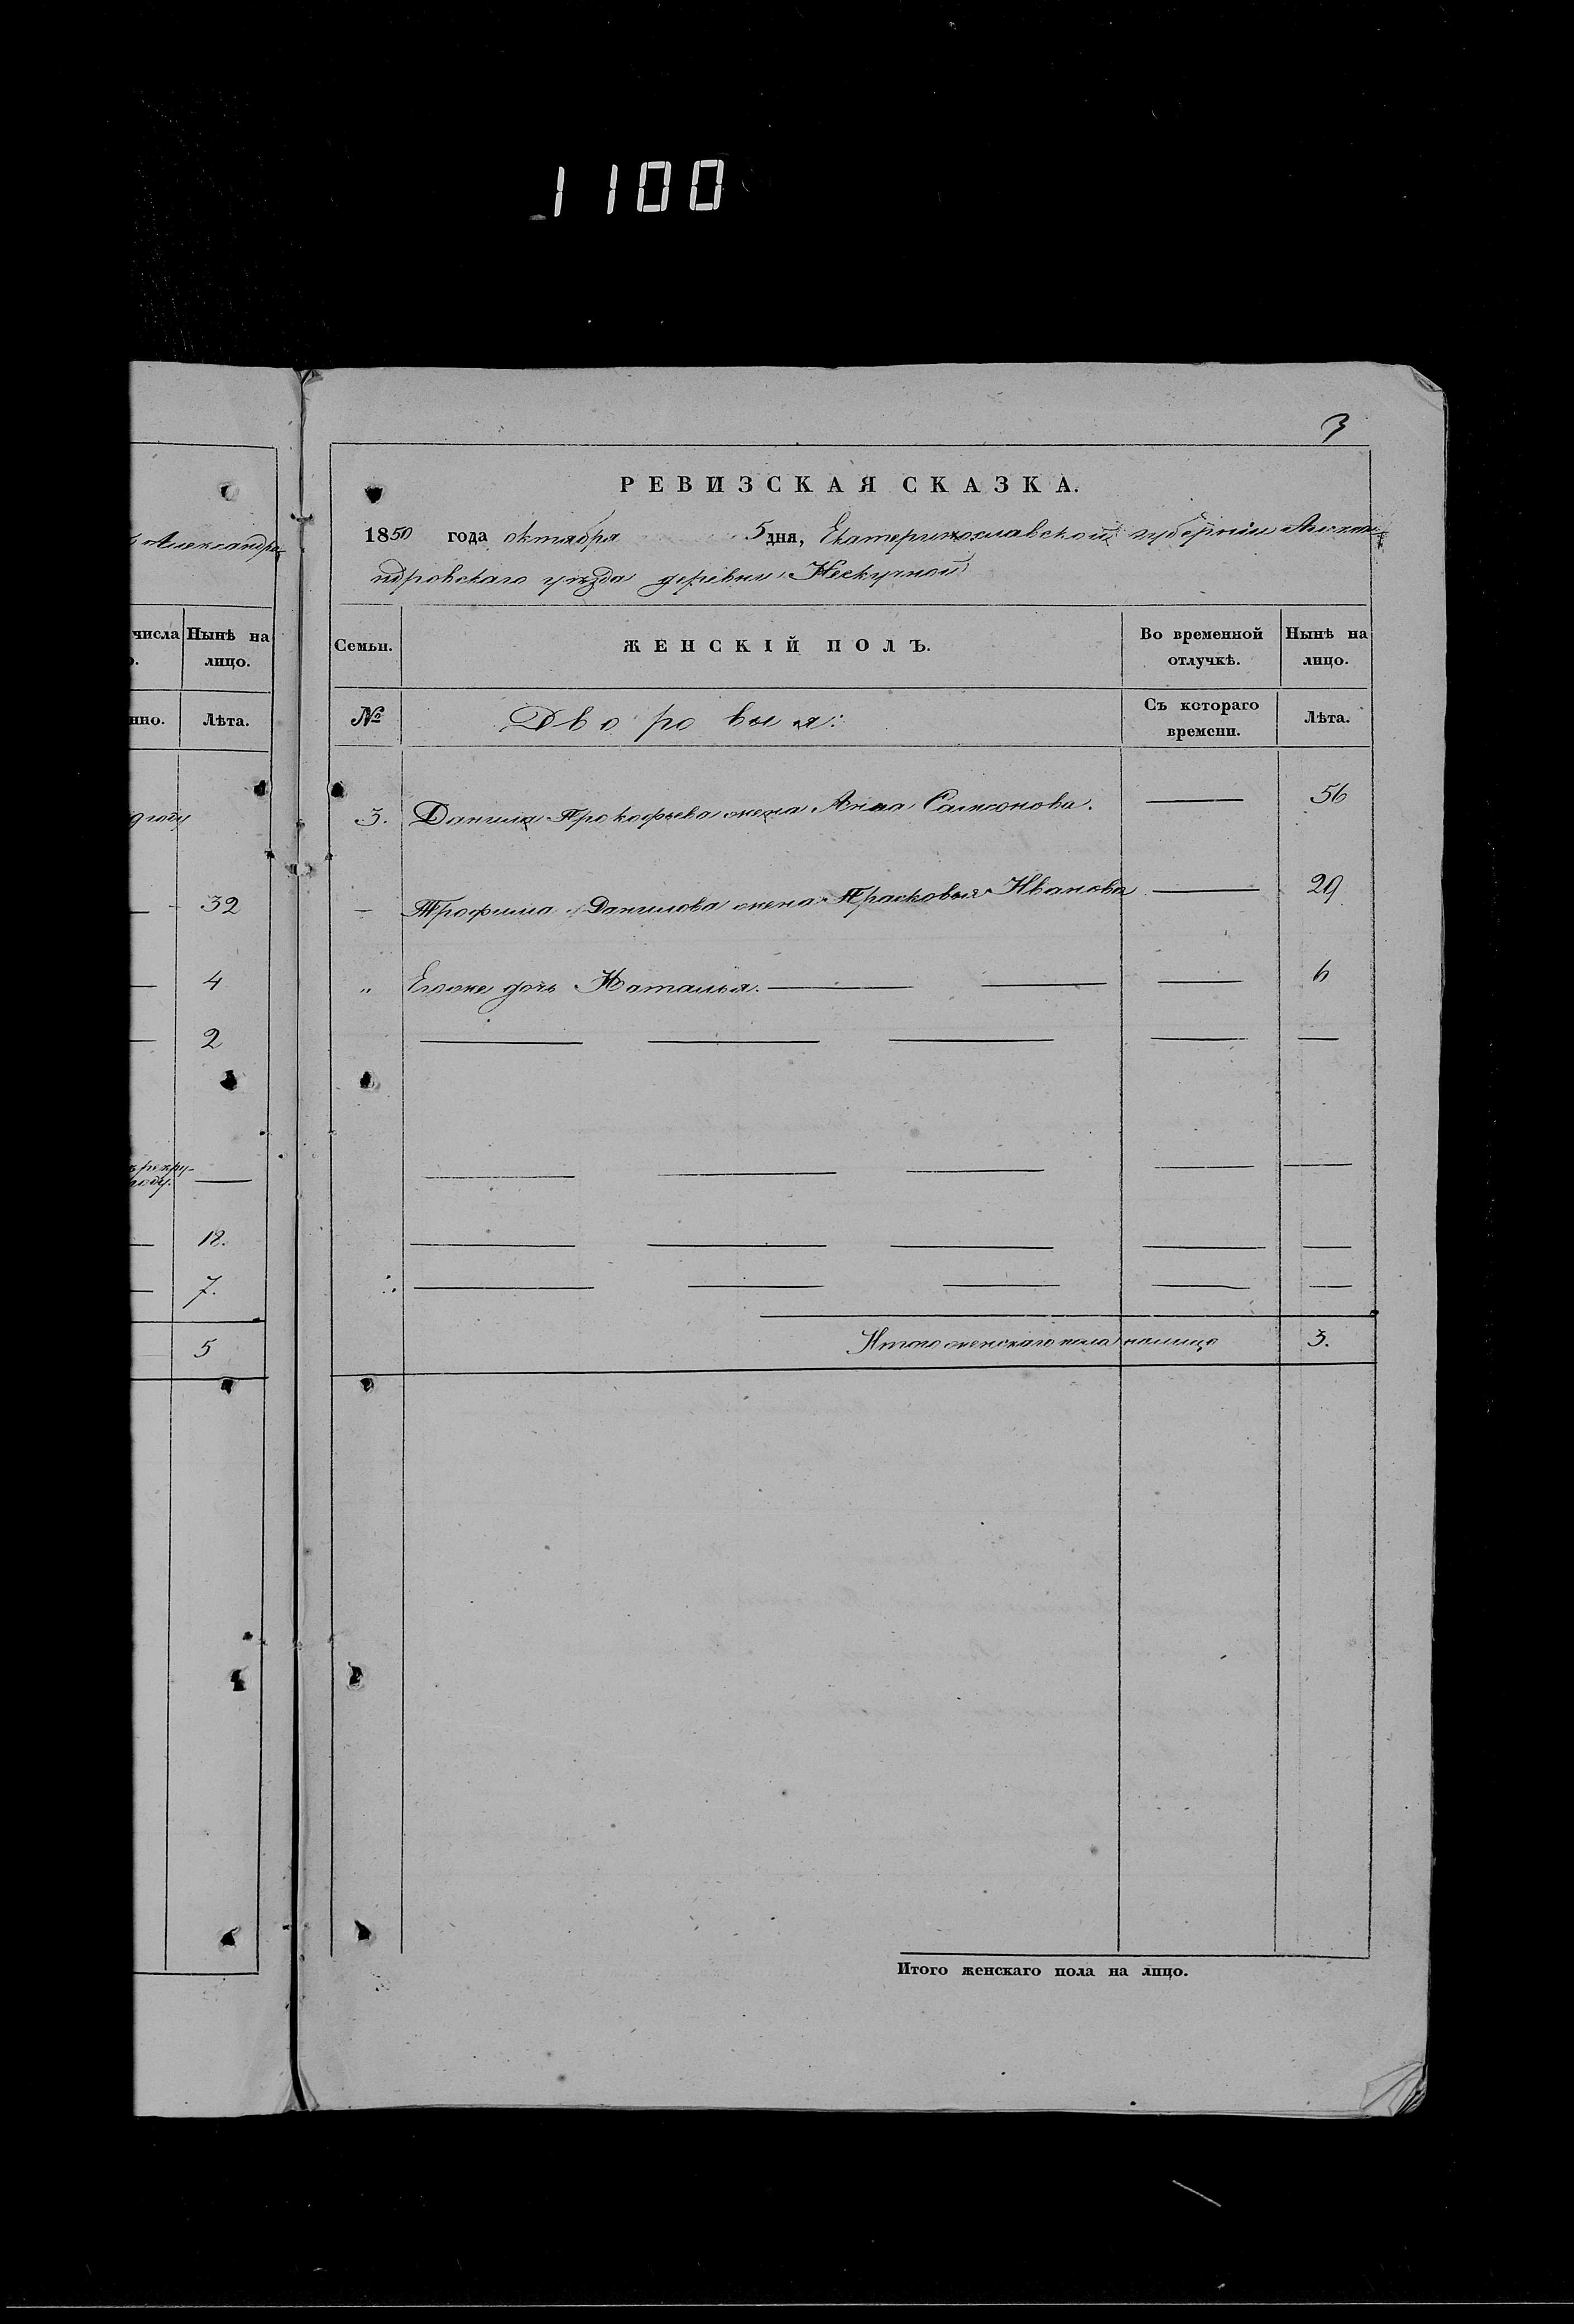 1100
3
РЕВИЗСКАЯ СКАЗКА.
1850 года октября 5 дня, Екатеринославской губерніи Алекса-
ндровскаго уѣзда деревни Нескучной
Александро-
числа Нынѣ на
лицо.
нно. Лѣта.
году
32
4
2
году.
12.
7.
5
Семьи. ЖЕНСКІЙ ПОЛЪ. Во временной Нынѣ на
отлучкѣ. лицо.
№ Дворовыя: Съ котораго Лѣта.
времени.
3. Данила Прокофьева жена Анна Самсонова. — 56
— Трофима Данилова жена Прасковья Иванова — 29
„ Егоже дочь Наталья. — — — 6
Итого женскаго пола налицо 3.
Итого женскаго пола на лицо.